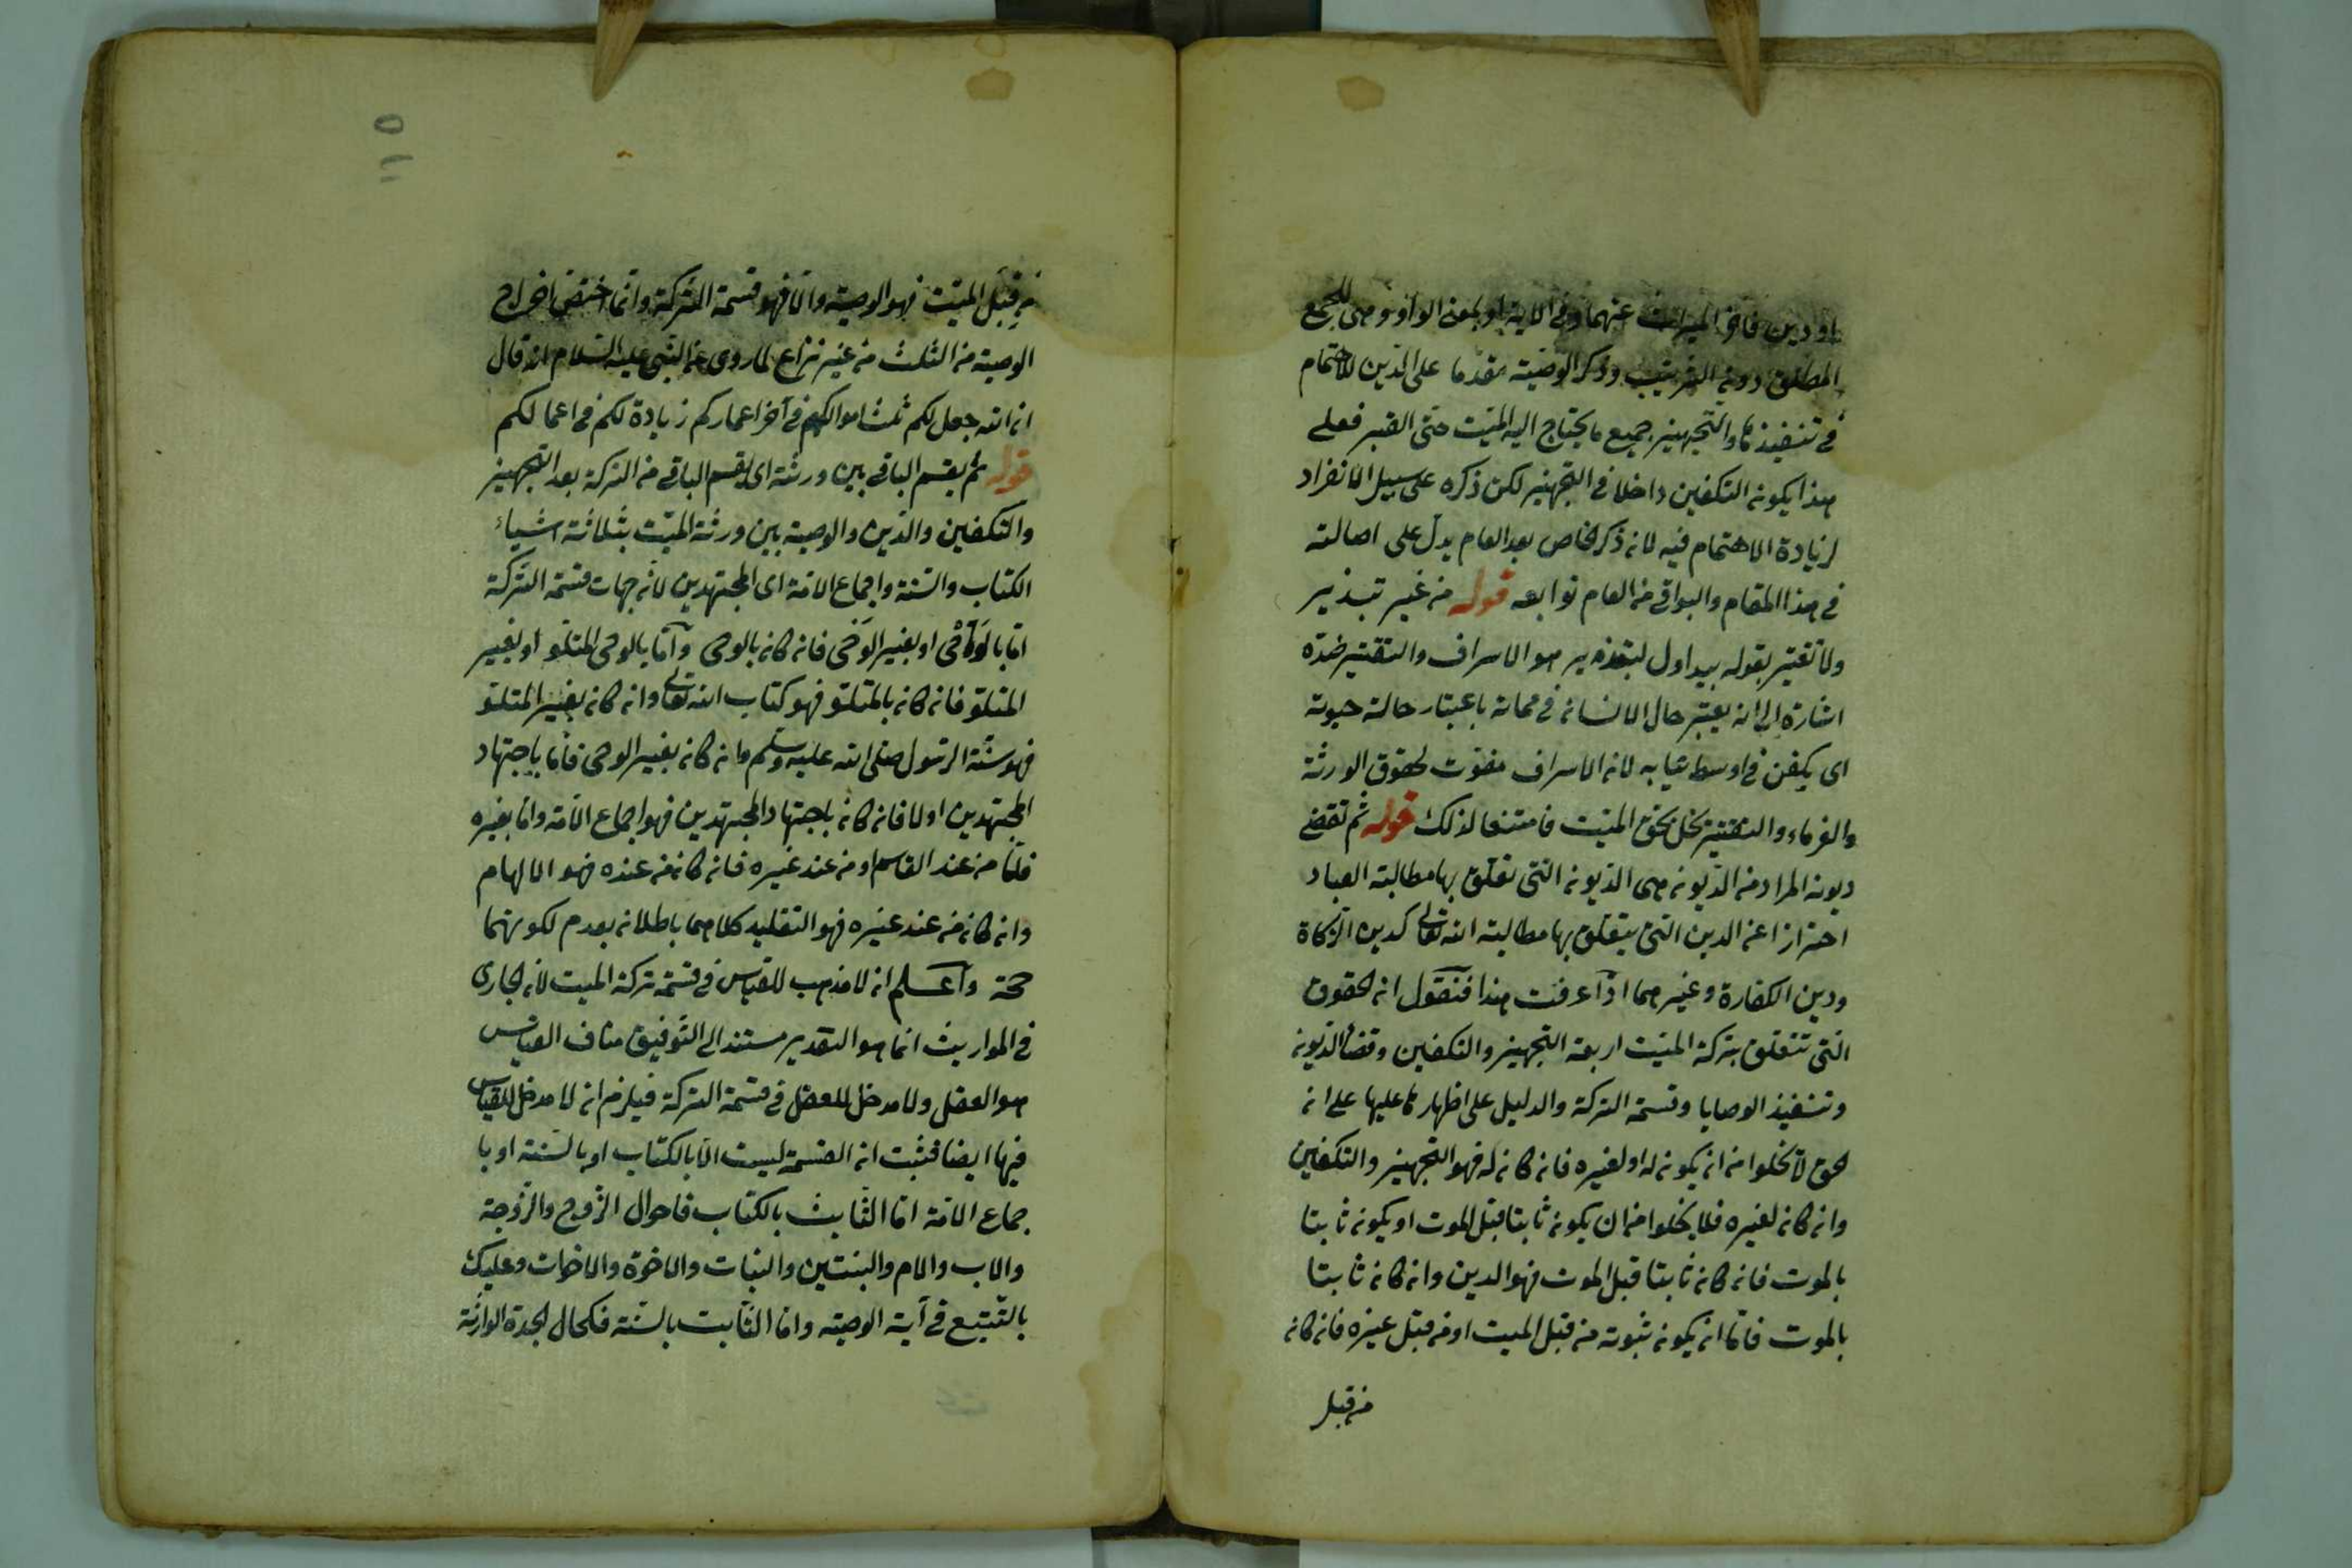 او دين فاخر الميراث عنهما وفى الاية او بمعنى الواو وهى للجمع
المطلق دون الترتيب وذكر الوصية مقدما على الدين للاهتمام
فى تنفيذها والتجهيز جميع ما يحتاج اليه الميت حتى القبر فعلى
هذا يكون التكفين داخلا فى التجهيز لكن ذكره على سبيل الانفراد
لزيادة الاهتمام فيه لان ذكر الخاص بعد العام يدل على اصالته
فى هذا المقام والبواقى من العام توابعه قوله من غير تبذير
ولا تقتير بقوله التبذير هو الاسراف والتقتير ضده
اشارة الى ان يعتبر حال الانسان فى مماته باعتبار حالة حيوته
اى يكفن فى اوسط ثيابه لان الاسراف مفوت لحقوق الورثة
والغرماء والتقتير يخل بحق الميت فامتنعا لذلك قوله ثم تقضى
ديونه المراد من الديون هى الديون التى تعلق بها مطالبة العباد
احترازا عن الدين التى يتعلق بها مطالبة الله تعالى كدين الزكاة
ودين الكفارة وغيرهما اذا عرفت هذا فنقول ان الحقوق
التى تتعلق بتركة الميت اربعة التجهيز والتكفين وقضاء الديون
وتنفيذ الوصايا وقسمة التركة والدليل على اظهار ما عليها على ان
الحق لا يخلوا من ان يكون له او لغيره فان كان له فهو التجهيز والتكفين
وان كان لغيره فلا يخلوا من ان يكون ثابتا قبل الموت او يكون ثابتا
بالموت فان كان ثابتا قبل الموت فهو الدين وان كان ثابتا
بالموت فاما ان يكون ثبوته من قبل الميت او من قبل غيره فان كان
من قبل
٥
من قبل الميت فهو الوصية والا فهو قسمة التركة وانما اختص اخراج
الوصية من الثلث من غير نزاع لما روى عن النبى عليه السلام انه قال
ان الله جعل لكم ثلث اموالكم فى آخر اعماركم زيادة لكم فى اعمالكم
قوله ثم يقسم الباقى بين ورثته اى يقسم الباقى من التركة بعد التجهيز
والتكفين والدين والوصية بين ورثة الميت بثلاثة اشياء
الكتاب والسنة واجماع الامة اى المجتهدين لان جهات قسمة التركة
اما بالوحى او بغير الوحى فان كان بالوحى واما بالوحى المتلو او بغير
المتلو فان كان بالمتلو فهو كتاب الله تعالى وان كان بغير المتلو
فهو سنة الرسول صلى الله عليه وسلم وان كان بغير الوحى فاما باجتهاد
المجتهدين او لا فان كان باجتهاد المجتهدين فهو اجماع الامة واما بغيره
فاما من عند القاسم او من عند غيره فان كان من عنده فهو الالهام
وان كان من عند غيره فهو التقليد كلاهما باطلان بعدم لكونهما
حجة واعلم ان لا مذهب للقياس فى قسمة تركة الميت لان الجارى
فى المواريث انما هو التقدير مستند الى التوفيق مناف القياس
هو العقل ولا مدخل للعقل فى قسمة التركة فيلزم ان لا مدخل للقياس
فيها ايضا فثبت ان القسمة ليست الا بالكتاب او بالسنة او با
جماع الامة اما الثابت بالكتاب فاحوال الزوج والزوجة
والاب والام والبنتين والبنات والاخوة والاخوات وعليك
بالتتبع فى آية الوصية واما الثابت بالسنة فكحال الجدة الوارثة